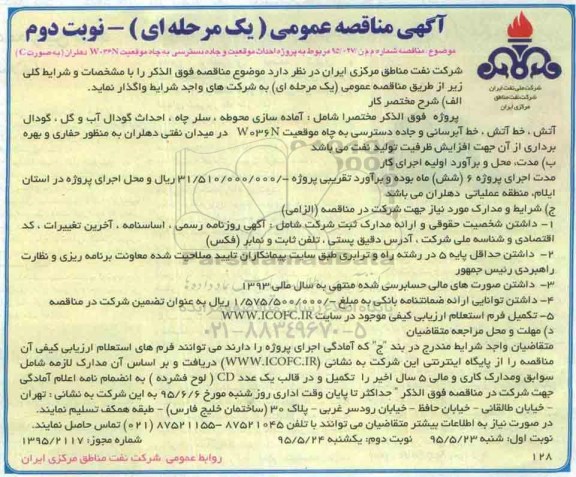 آگهی مناقصه عمومی ( یک مرحله ای ) – نوبت دوم
موضوع: مناقصه شماره م م ن/۹۵/۰۲۷ مربوط به پروژه احداث موقعیت و جاده دسترسی به چاه موقعیت W۰۳۶N دهلران (به صورت C)
شرکت ملی نفت ایران
شرکت نفت مناطق
مرکزی ایران
شرکت نفت مناطق مرکزی ایران در نظر دارد موضوع مناقصه فوق الذکر را با مشخصات و شرایط کلی
زیر از طریق مناقصه عمومی (یک مرحله ای) به شرکت های واجد شرایط واگذار نماید.
الف) شرح مختصر کار
پروژه فوق الذکر مختصرا شامل : آماده سازی محوطه ، سلر چاه ، احداث گودال آب و گل ، گودال
آتش ، خط آتش ، خط آبرسانی و جاده دسترسی به چاه موقعیت W۰۳۶N در میدان نفتی دهلران به منظور حفاری و بهره
برداری از آن جهت افزایش ظرفیت تولید نفت می باشد
ب) مدت، محل و برآورد اولیه اجرای کار
مدت اجرای پروژه ۶ (شش) ماه بوده و برآورد تقریبی پروژه -/۳۱/۵۱۰/۰۰۰/۰۰۰ ریال و محل اجرای پروژه در استان
ایلام، منطقه عملیاتی دهلران می باشد
ج) شرایط و مدارک مورد نیاز جهت شرکت در مناقصه (الزامی)
۱- داشتن شخصیت حقوقی و ارائه مدارک ثبت شرکت شامل : آگهی روزنامه رسمی ، اساسنامه ، آخرین تغییرات ، کد
اقتصادی و شناسه ملی شرکت ، آدرس دقیق پستی ، تلفن ثابت و نمابر (فکس)
۲- داشتن حداقل پایه ۵ در رشته راه و ترابری طبق سایت پیمانکاران تایید صلاحیت شده معاونت برنامه ریزی و نظارت
راهبردی رئیس جمهور
۳- داشتن صورت های مالی حسابرسی شده منتهی به سال مالی ۱۳۹۳
۴- داشتن توانایی ارائه ضمانتنامه بانکی به مبلغ -/۱/۵۷۵/۵۰۰/۰۰۰ ریال به عنوان تضمین شرکت در مناقصه
۵- تکمیل فرم استعلام ارزیابی کیفی موجود در سایت WWW.ICOFC.IR
۰۲۱-۸۸۳۴۹۶۷۰-۵
د) مهلت و محل مراجعه متقاضیان
متقاضیان واجد شرایط مندرج در بند "ج" که آمادگی اجرای پروژه را دارند می توانند فرم های استعلام ارزیابی کیفی آن
مناقصه را از پایگاه اینترنتی این شرکت به نشانی (WWW.ICOFC.IR) دریافت و بر اساس آن مدارک لازمه شامل
سوابق ومدارک کاری و مالی ۵ سال اخیر را تکمیل و در قالب یک عدد CD ( لوح فشرده ) به انضمام نامه اعلام آمادگی
جهت شرکت در مناقصه فوق الذکر " حداکثر تا پایان وقت اداری روز شنبه مورخ ۹۵/۶/۶ به این شرکت به نشانی : تهران
- خیابان طالقانی - خیابان حافظ - خیابان رودسر غربی - پلاک ۳۰ (ساختمان خلیج فارس) - طبقه همکف تسلیم نمایند.
در صورت نیاز به اطلاعات بیشتر متقاضیان می توانند با تلفن ۸۷۵۲۱۰۴۵ -۸۷۵۲۱۱۵۵ (۰۲۱) تماس حاصل نمایند.
نوبت اول: شنبه ۹۵/۵/۲۳ نوبت دوم: یکشنبه ۹۵/۵/۲۴ شماره مجوز: ۱۳۹۵/۲۱۱۷
۱۲۸ روابط عمومی شرکت نفت مناطق مرکزی ایران